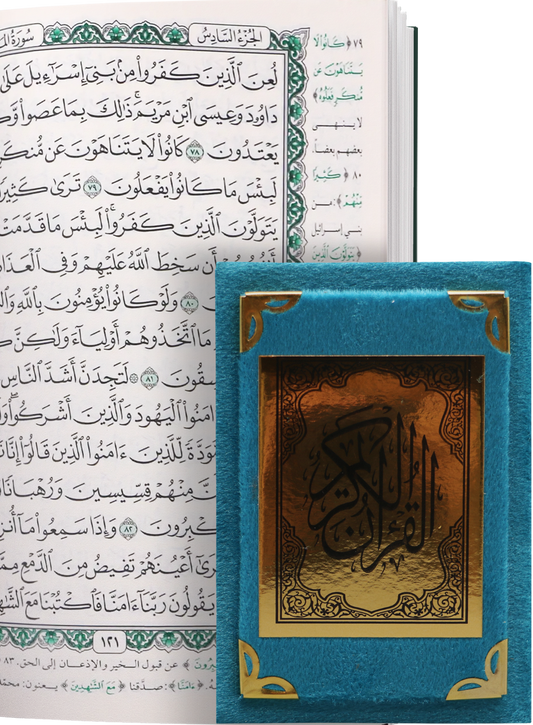 الجُزْءُ السَّادِسُ
سُورَةُ الم
لُعِنَ ٱلَّذِينَ كَفَرُوا۟ مِنۢ بَنِىٓ إِسْرَٰٓءِيلَ عَلَىٰ
دَاوُۥدَ وَعِيسَى ٱبْنِ مَرْيَمَ ۚ ذَٰلِكَ بِمَا عَصَوا۟ وَّكَ
يَعْتَدُونَ ٧٨ كَانُوا۟ لَا يَتَنَاهَوْنَ عَن مُّنكَرٍ
لَبِئْسَ مَا كَانُوا۟ يَفْعَلُونَ ٧٩ تَرَىٰ كَثِيرًا
يَتَوَلَّوْنَ ٱلَّذِينَ كَفَرُوا۟ ۚ لَبِئْسَ مَا قَدَّمَتْ
أَن سَخِطَ ٱللَّهُ عَلَيْهِمْ وَفِى ٱلْعَذَا
٨٠ وَلَوْ كَانُوا۟ يُؤْمِنُونَ بِٱللَّهِ وَٱل
مَا ٱتَّخَذُوهُمْ أَوْلِيَآءَ وَلَٰكِنَّ كَ
سِقُونَ ٨١ ۞ لَتَجِدَنَّ أَشَدَّ ٱلنَّاسِ
امَنُوا۟ ٱلْيَهُودَ وَٱلَّذِينَ أَشْرَكُوا۟ ۖ وَلَ
وَدَّةً لِّلَّذِينَ ءَامَنُوا۟ ٱلَّذِينَ قَالُوٓا۟ إِنَّا نَ
نَّ مِنْهُمْ قِسِّيسِينَ وَرُهْبَانًا
كْبِرُونَ ٨٢ وَإِذَا سَمِعُوا۟ مَآ أُنزِ
رَىٰٓ أَعْيُنَهُمْ تَفِيضُ مِنَ ٱلدَّمْعِ مِمَّا
يَقُولُونَ رَبَّنَآ ءَامَنَّا فَٱكْتُبْنَا مَعَ ٱلشَّٰهِ
١٢١
٧٩ ﴿كَانُوا۟ لَا
يَتَنَاهَوْنَ عَن
مُّنكَرٍ فَعَلُوهُ﴾
لا ينهى
بعضهم بعضًا.
٨٠ ﴿كَثِيرًا
مِّنْهُمْ﴾: من
بني إسرائيل
﴿يَتَوَلَّوْنَ ٱلَّذِينَ
بِرُونَ﴾ عن قبول الخير والإذعان إلى الحق. ٨٣
﴿ءَامَنَّا﴾: صدقنا ﴿مَعَ ٱلشَّٰهِدِينَ﴾ يعنون: محمد
القرآن الكريم